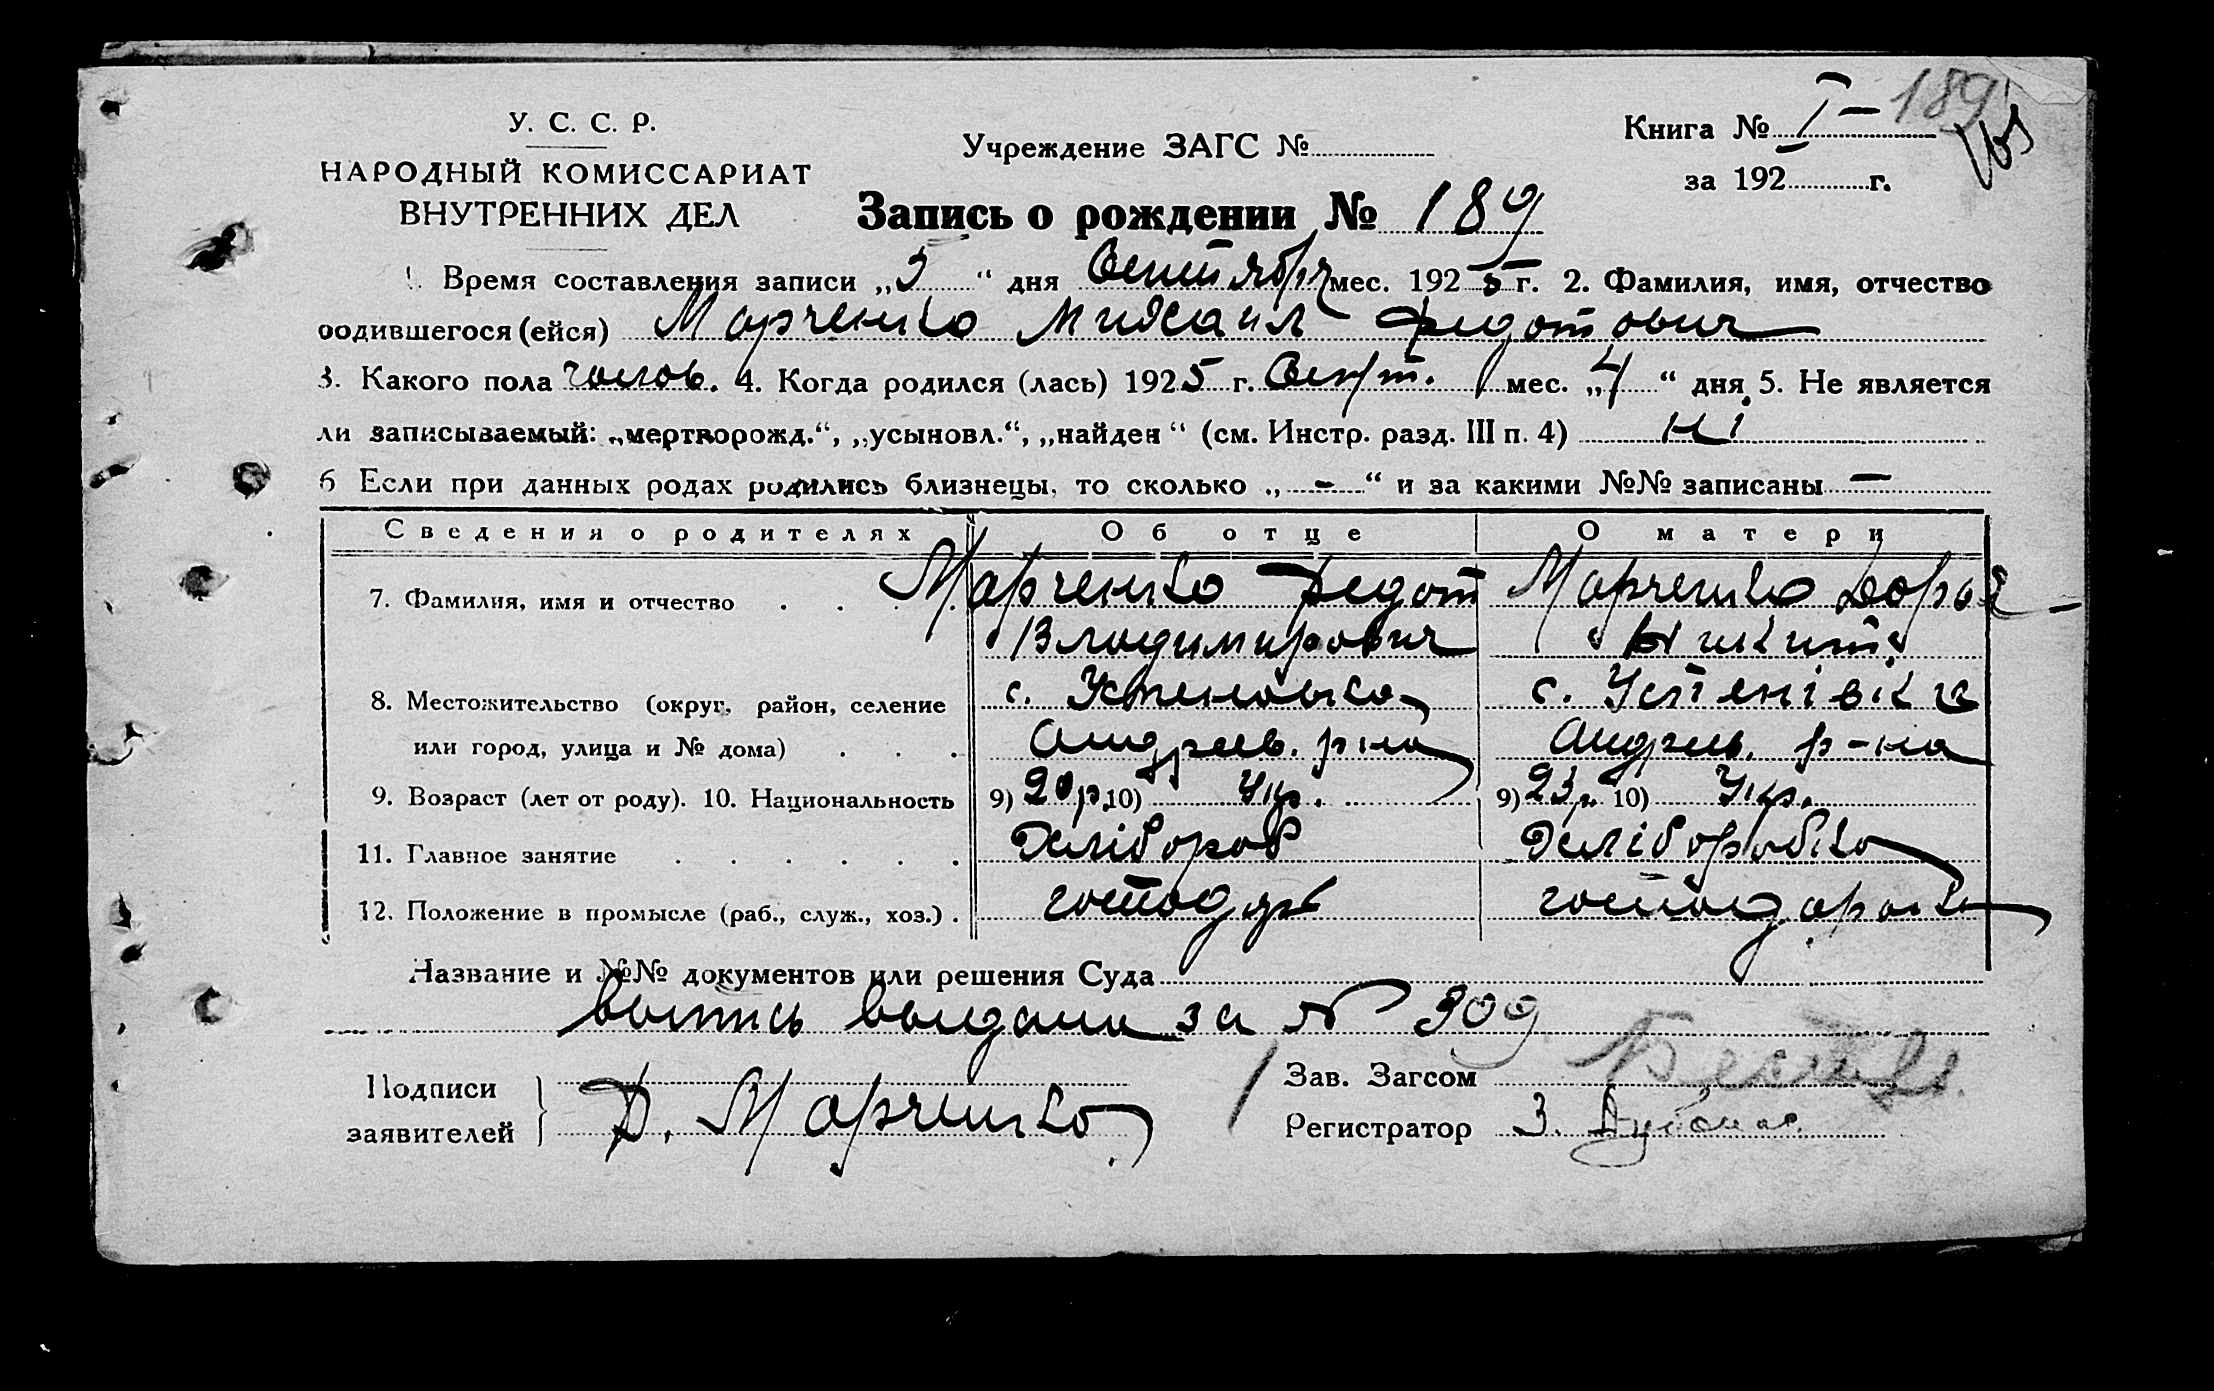 Книга № I – 189
У. С. С. Р.
Учреждение ЗАГС №
НАРОДНЫЙ КОМИССАРИАТ
за 192 г.
ВНУТРЕННИХ ДЕЛ
Запись о рождении № 189
1. Время составления записи „5“ дня Сентября мес. 1925 г. 2. Фамилия, имя, отчество
родившегося (ейся) Марченко Михаил Федотович
3. Какого пола чолов. 4. Когда родился (лась) 1925 г. Сент. мес. „4“ дня 5. Не является
ли записываемый: „мертворожд.“, „усыновл.“, „найден“ (см. Инстр. разд. III п. 4) ні
6 Если при данных родах родились близнецы, то сколько „-“ и за какими №№ записаны —
Сведения о родителях Об отце О матери
7. Фамилия, имя и отчество Марченко Федот Марченко Дарья
Владимирович Никит.
8. Местожительство (округ, район, селение с. Успеновка с. Успенівка
или город, улица и № дома) Андреев. р-на Андреев. р-на
9. Возраст (лет от роду). 10. Национальность 9) 20 р. 10) Укр. 9) 23 р. 10) Укр.
11. Главное занятие Хлібороб Хліборобка
12. Положение в промысле (раб., служ., хоз.) господарь господарька
Название и №№ документов или решения Суда
выпись выдана за № 309
Подписи
заявителей
Ф. Марченко
Зав. Загсом
Регистратор З.